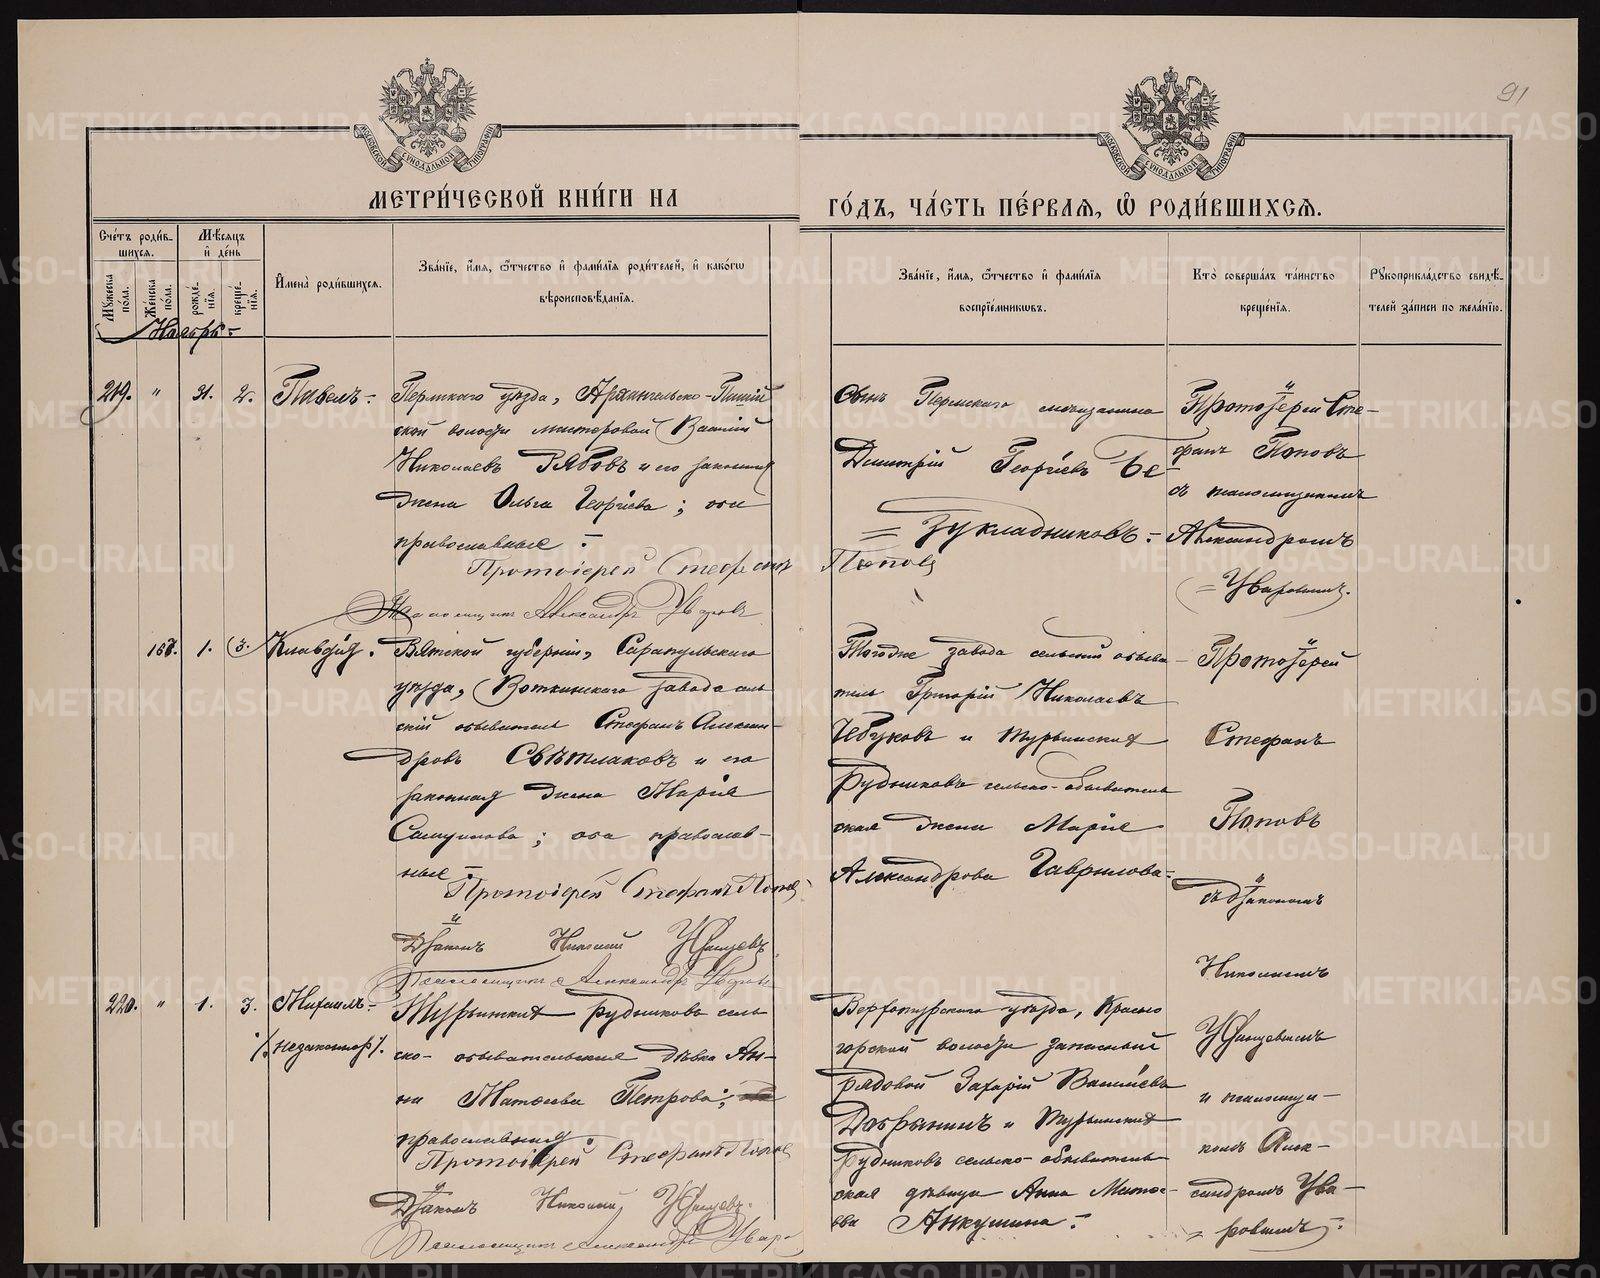 91
МОСКОВСКОЙ СѴНОДАЛЬНОЙ ТИПОГРАФІИ
МОСКОВСКОЙ СѴНОДАЛЬНОЙ ТИПОГРАФІИ
МЕТРИ́ЧЕСКОЙ КНИ́ГИ НА
ГО́ДЪ, ЧА́СТЬ ПЕ́РВАЯ, Ѡ РОДИ́ВШИХСЯ.
Сче́тъ роди́в-
шихся.
Мѣ́сяцъ
и де́нь
Му́жеска по́ла.
Же́нска по́ла.
рожде́-
нія.
креще́-
нія.
Имена̀ роди́вшихся.
Зва́ніе, и́мя, ѻ́тчество и фами́лія роди́телей, и како́гѡ
вѣроисповѣ́данія.
Зва́ніе, и́мя, ѻ́тчество и фами́лія
воспріе́мниковъ.
Кто̀ соверша́лъ та́инство
креще́нія.
Рукоприкла́дство свидѣ́-
телей за́писи по жела́нію.
Ноябрь
219. " 31. 2. Павелъ
Пермскаго уѣзда, Архангельско-Пашій
ской волости мастеровой Василій
Николаевъ Зябовъ и его законная
жена Ольга Георгіева; оба
православные
Протоіерей Стефанъ Попов
Псаломщикъ Александръ Уваровъ
Сынъ Пермскаго мѣщанина
Димитрій Георгіевъ Бе
зукладниковъ.
Протоіерей Сте-
фанъ Поповъ
съ псаломщикомъ
Александромъ
Уваровымъ.
168. 1. 3. Клавдія.
Вятской губерніи, Сарапульскаго
уѣзда, Воткинскаго завода сель
скій обыватель Стефанъ Алексан-
дровъ Свѣтлаковъ и его
законная жена Марія
Самуилова; оба православ-
ные.
Протоіерей Стефанъ Попов
Діаконъ Николай
Псаломщикъ Александръ Уваров
Тогоже завода сельскій обыва-
тель Григорій Николаевъ
Чебуковъ и Турьинскихъ
Рудниковъ сельско-обыватель
ская жена Марія
Александрова Гаврилова.
Протоіерей
Стефанъ
Поповъ
съ діакономъ
Николаемъ
и псаломщи-
комъ Алек-
сандромъ Ува-
ровымъ.
220. " 1. 3. Михаилъ
незаконнор.
Турьинскихъ рудниковъ сель
ско-обывательская дѣвка Ан-
на Матѳеева Петрова;
православная.
Протоіерей Стефанъ Попов
Діаконъ Николай
Псаломщикъ Александръ Увар
Верхотурскаго уѣзда, Красно
горской волости запасный
рядовой Захарій Васильевъ
Добрынинъ и Турьинскихъ
Рудниковъ сельско-обыватель
ская дѣвица Анна Матѳе-
ева Анкушина.
METRIKI.GASO-URAL.RU